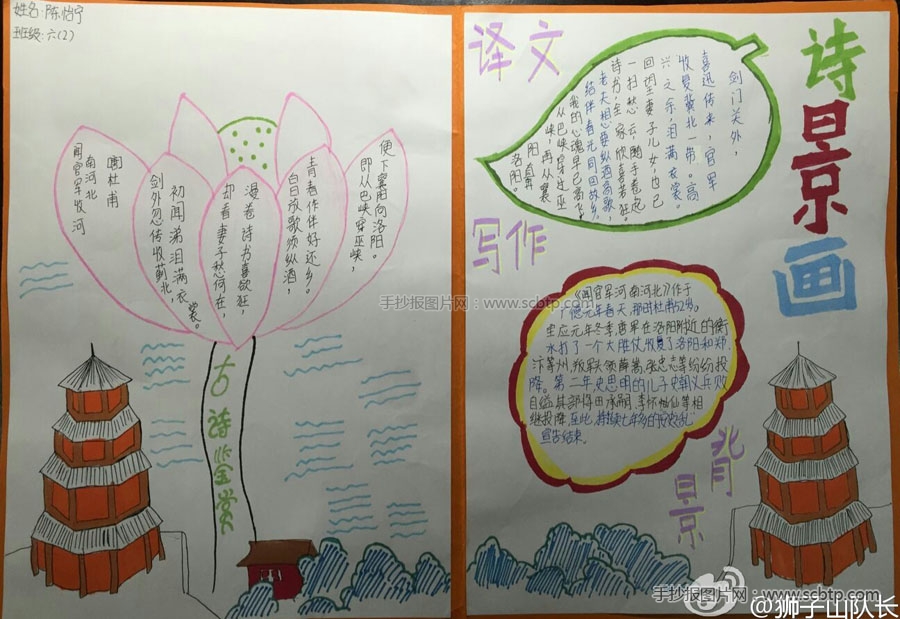 姓名:陈怡宁
班级:六(2)
闻官军收河
南河北
杜甫
剑外忽传收蓟北,
初闻涕泪满衣裳。
却看妻子愁何在,
漫卷诗书喜欲狂,
白日放歌须纵酒,
青春作伴好还乡。
即从巴峡穿巫峡,
便下襄阳向洛阳。
古诗鉴赏
诗景画
译文
剑门关外,
喜迅传来,官军
收复冀北一带。高
兴之余,泪满衣裳。
回望妻子儿女,也已
一扫愁云,随手卷起
诗书,全家欣喜若狂。
老夫想要纵酒高歌,
结伴春光同回故乡。
我的心魂早已高飞,
从巴峡穿过巫
峡,再从襄
阳直奔
洛阳。
写作
背景
《闻官军河南河北》作于
广德元年春天,那时杜甫52岁。
宝应元年冬季,唐军在洛阳附近的衡
水打了一个大胜仗,收复了洛阳和郑、
汴等州,叛军头领薛嵩、张忠志等纷纷投
降。第二年史思明的儿子史朝义兵败
自缢,其部将田承嗣、李怀仙等相
继投降,至此,持续七年多的安史之乱
宣告结束。
手抄报图片网:www.scbtp.com
手抄报图片网:www.scbtp.com
@狮子山队长